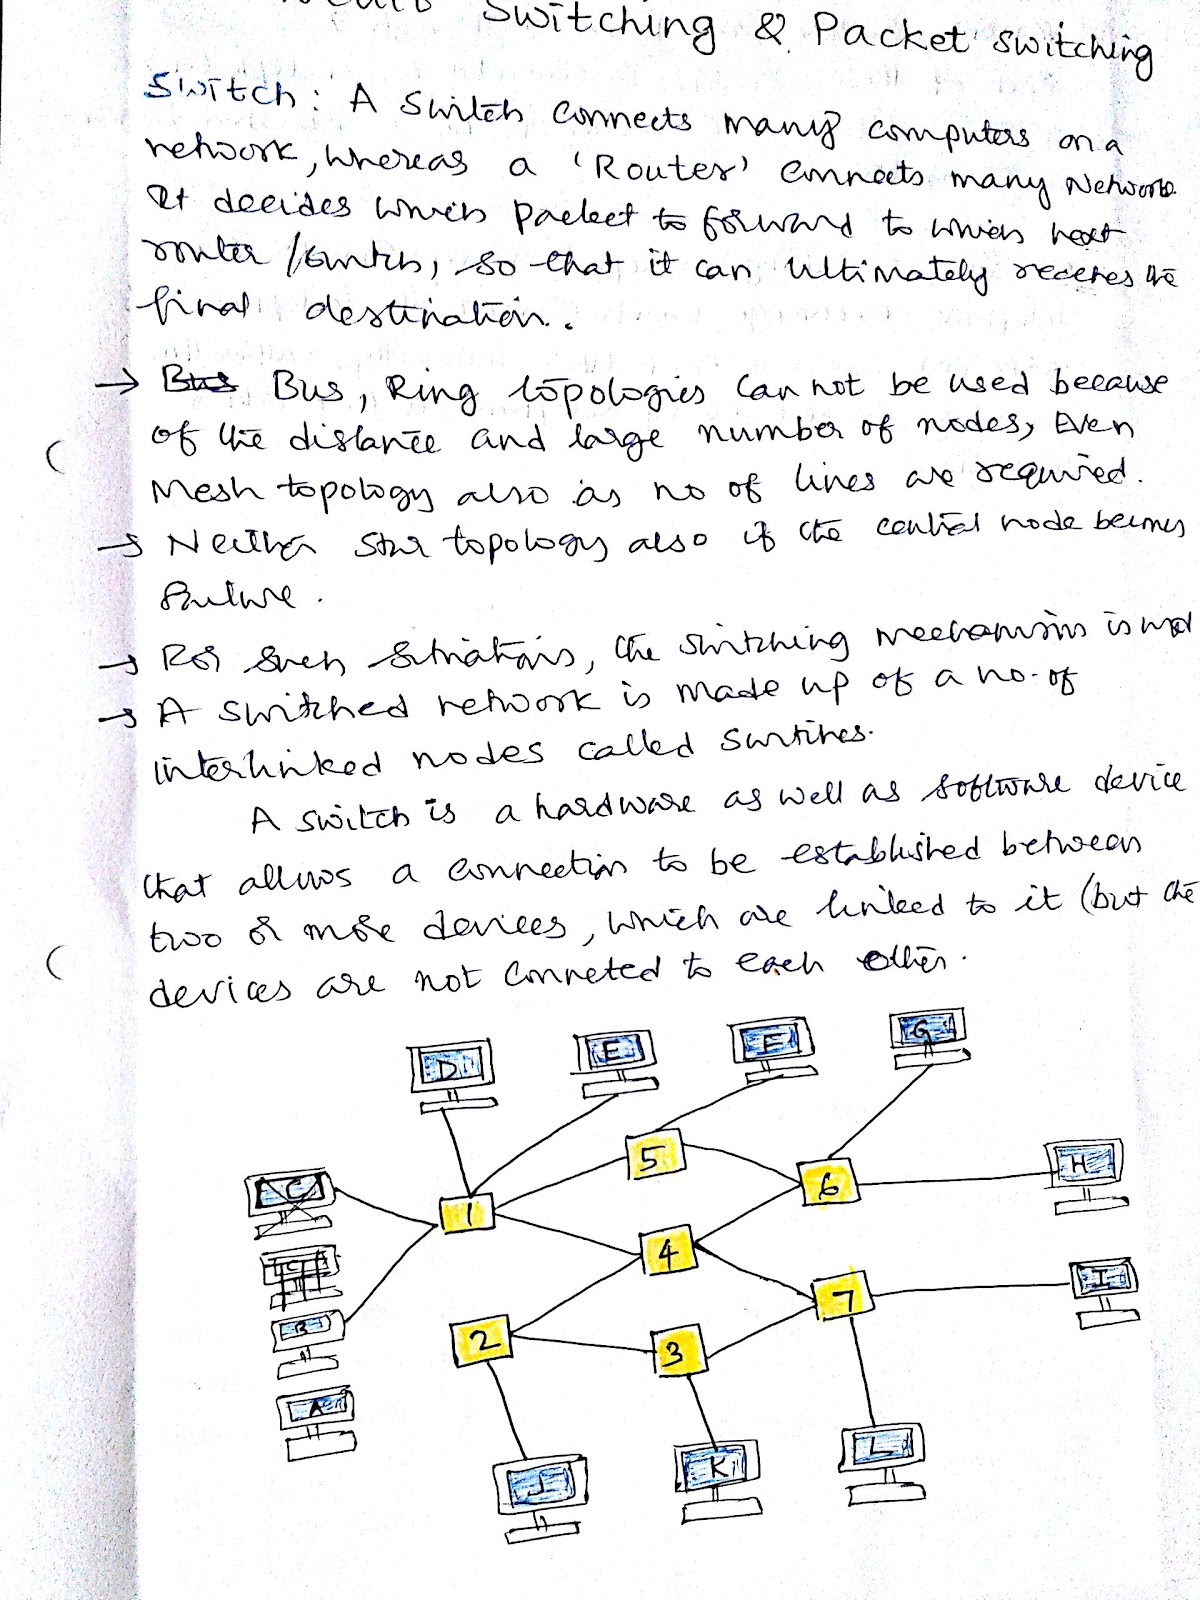 Switching & Packet switching
Switch: A Switch Connects many computers on a
network, whereas a 'Router' Connects many Network
It decides which packet to forward to which next
router / switch, so that it can ultimately receches the
final destination.
→ Bus Bus, Ring topologies Can not be used because
of the distance and large number of nodes, Even
Mesh topology also as no of lines are required.
→ Neither Star topology also if the central node becomes
failure.
→ For Such Situations, the switching mechanism is used
→ A switched network is made up of a no. of
interlinked nodes called Switches.
A switch is a hardware as well as software device
that allows a connection to be established between
two or more devices, which are linked to it (but the
devices are not conneted to each other.
D E F G
5
C 1 6 H
4
B 7 I
2 3
A
J K L